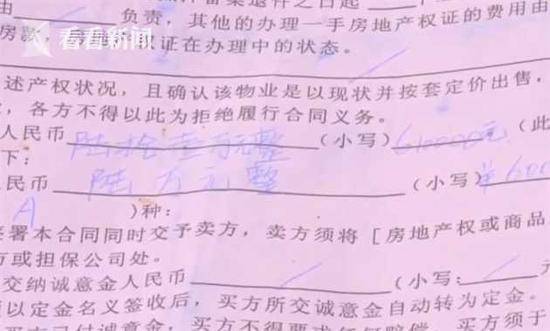 由 负责，其他的办理一手房地产权证的费用由
房款， 权证在办理中的状态。
看看新闻
述产权状况，且确认该物业是以现状并按套定价出售，
，各方不得以此为拒绝履行合同义务。
人民币 陆拾壹万元整 (小写) 610000元 (此
下：
民币 陆万元整 (小写) ¥600
A )种：
签署本合同同时交予卖方，卖方须将 [房地产权或商品
方或担保公司处。
交纳诚意金人民币 (小写: 元
以定金名义签收后，买方所交诚意金自动转为定金。